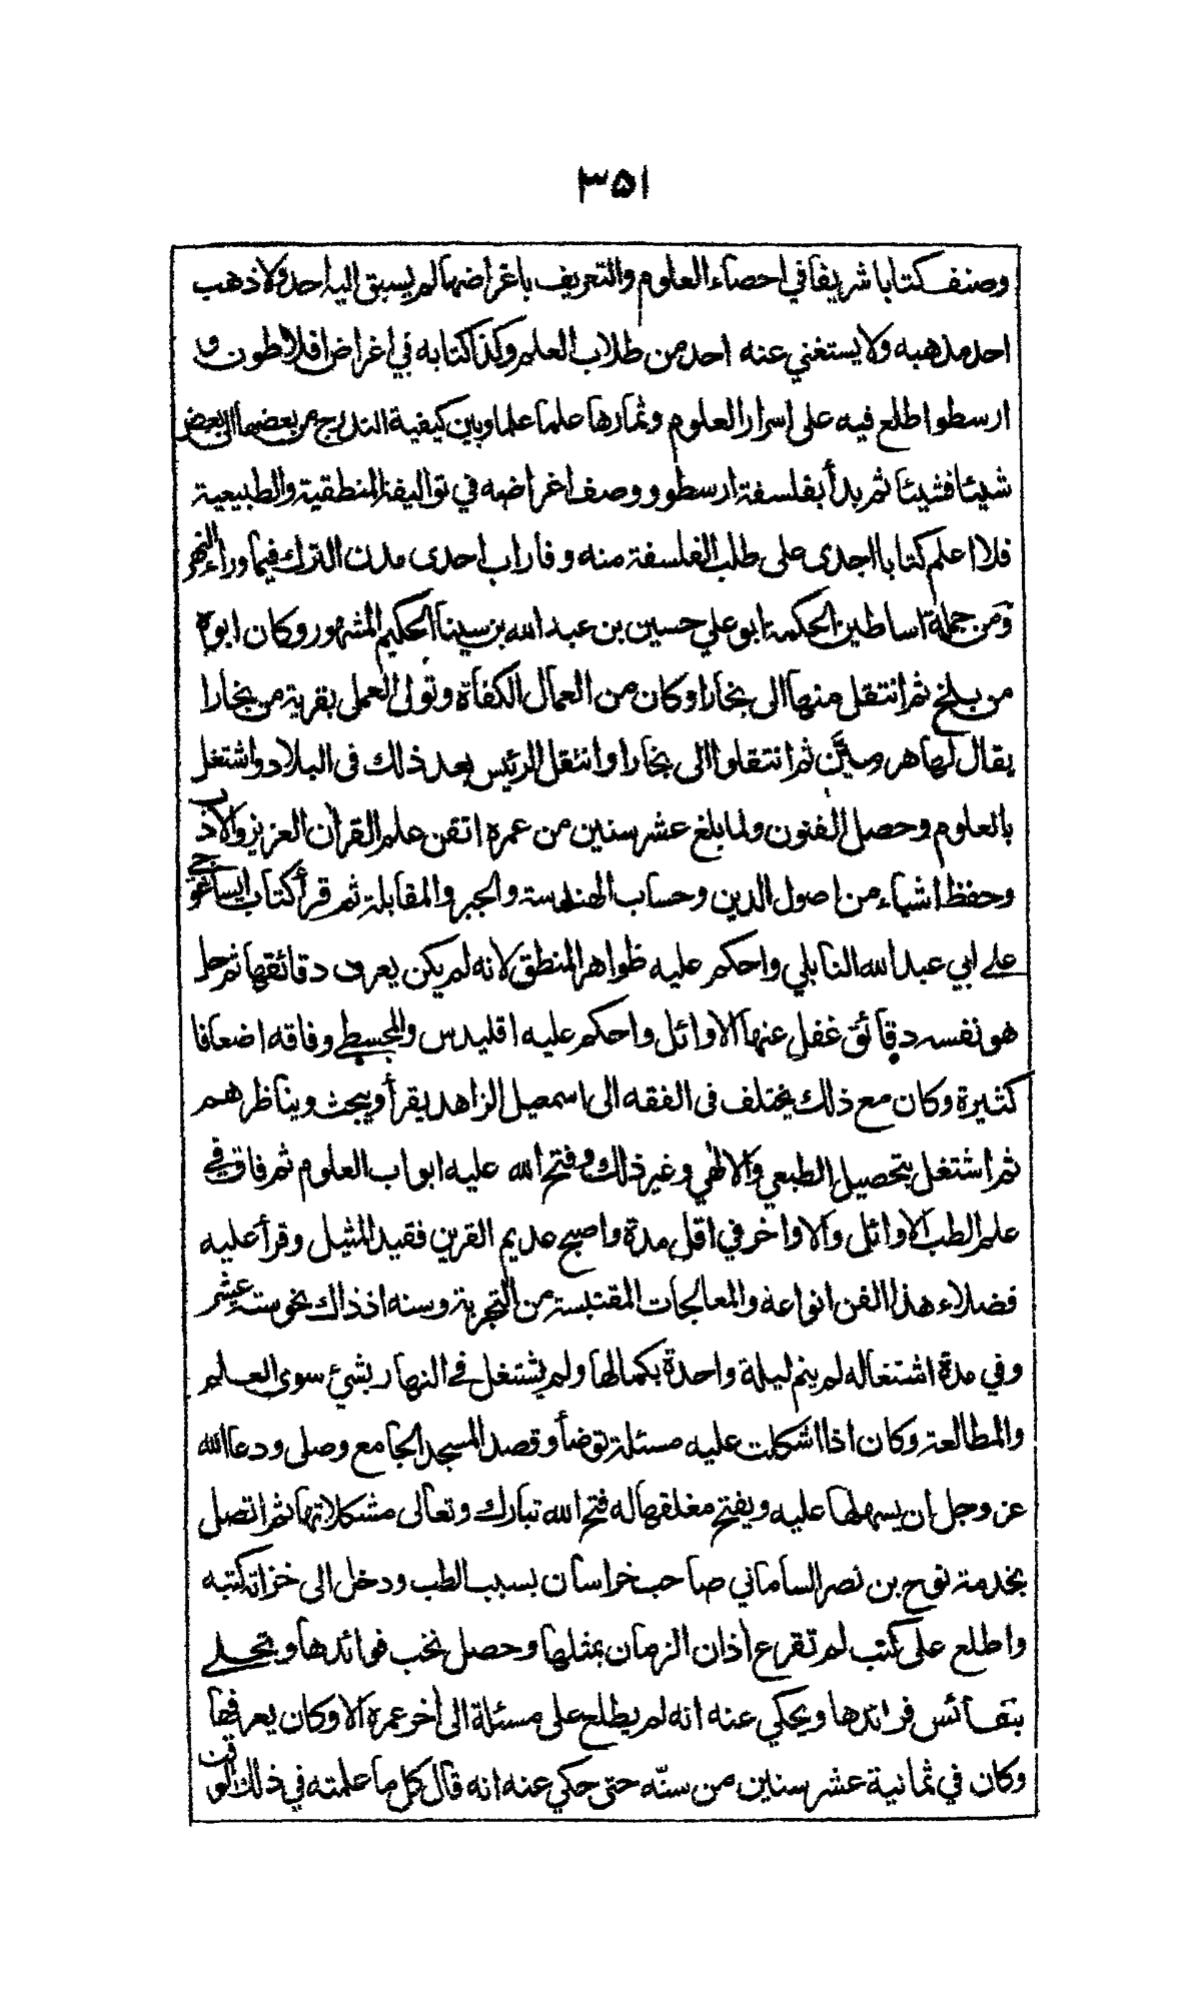 ٣٥١
وصنف كتابا شريفا في احصاء العلوم والتعريف باغراضها لم يسبق اليه احد ولا ذهب
احد مذهبه ولا يستغني عنه احد من طلاب العلم وكذا كتابه في اغراض افلاطون و
ارسطو اطلع فيه على اسرار العلوم وثمارها علما علما وبين كيفية التدرج من بعضها الى بعض
شيئا فشيئا ثم بدأ بفلسفة ارسطو ووصف اغراضه في تواليفه المنطقية والطبيعية
فلا اعلم كتابا اجدى على طلب الفلسفة منه وفاراب احدى مدن الترك فيما وراء النهر
ومن جملة اساطين الحكمة ابو علي حسين بن عبد الله بن سينا الحكيم المشهور وكان ابوه
من بلخ ثم انتقل منها الى بخارا وكان من العمال الكفاة وتولى العمل بقرية من بخارا
يقال لها هرميثن ثم انتقلوا الى بخارا وانتقل الرئيس بعد ذلك في البلاد واشتغل
بالعلوم وحصل الفنون ولما بلغ عشر سنين من عمره اتقن علم القرآن العزيز والادب
وحفظ اشياء من اصول الدين وحساب الهندسة والجبر والمقابلة ثم قرأ كتاب ايساغوجي
على ابي عبد الله الناتلي واحكم عليه ظواهر المنطق لانه لم يكن يعرف دقائقها ثم حل
هو نفسه دقائق غفل عنها الاوائل واحكم عليه اقليدس والمجسطي وفاقه اضعافا
كثيرة وكان مع ذلك يختلف في الفقه الى اسمعيل الزاهد يقرأ ويبحث ويناظر هم
ثم اشتغل بتحصيل الطبعي والالهي وغير ذلك وفتح الله عليه ابواب العلوم ثم فاق في
علم الطب الاوائل والاواخر في اقل مدة واصبح عديم القرين فقيد المثيل وقرأ عليه
فضلاء هذا الفن انواعه والمعالجات المقتبسة من التجربة وسنه اذ ذاك نحو ستة عشر
وفي مدة اشتغاله لم ينم ليلة واحدة بكمالها ولم يشتغل في النهار بشئ سوى العلم
والمطالعة وكان اذا اشكلت عليه مسئلة توضأ وقصد المسجد الجامع وصلى ودعا الله
عز وجل ان يسهلها عليه ويفتح مغلقها له فتح الله تبارك وتعالى مشكلاتها ثم اتصل
بخدمة نوح بن نصر الساماني صاحب خراسان بسبب الطب ودخل الى خزانة كتبه
واطلع على كتب لم تقرع اذان الزمان بمثلها وحصل نخب فوائدها وتحلى
بنفائس فرائدها ويحكي عنه انه لم يطلع على مسئلة الى اخر عمره الا وكان يعرفها
وكان في ثمانية عشر سنين من سنّه حتى حكي عنه انه قال كل ما علمته في ذلك الوقت